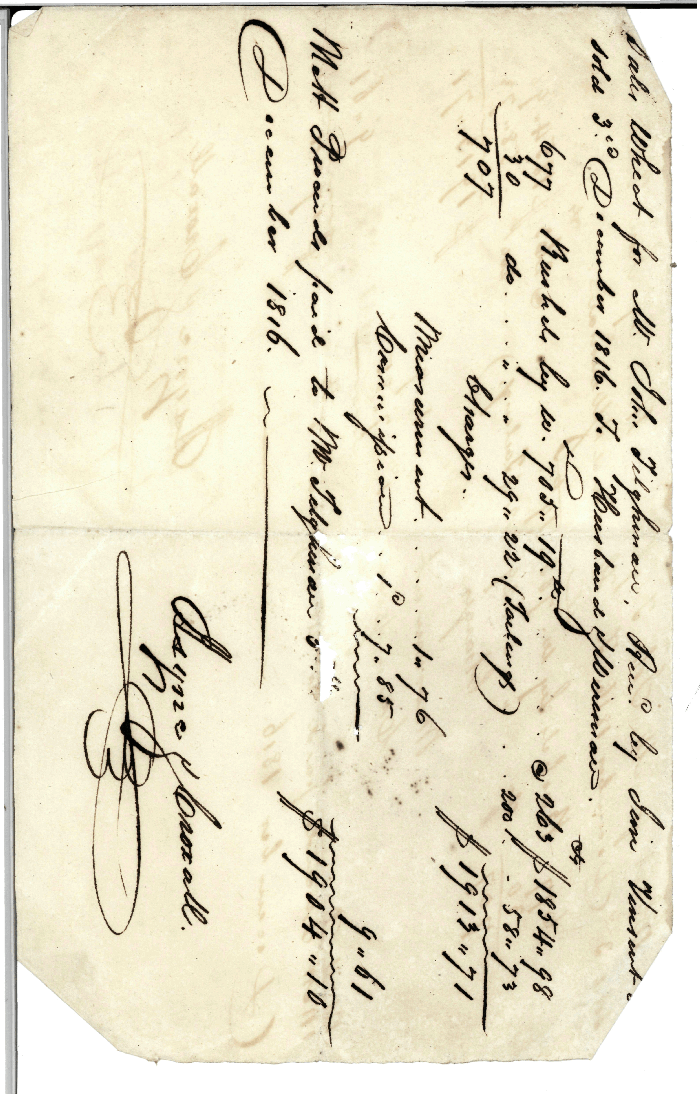 Sales Wheat for Mr. John Tilghman, Recd. by Jim Vincent
sold 3rd December 1816 To Husband &
677 Bushels by w. 705 " 19 lb @ 263 cts $ 1854 " 98
30 do . . " . . 29 " 22 ( ) . . 200/ . . 58 " 73
707 $ 1913 " 71
Charges.
Measurement . . . . 1 " 76
Commission . . 1 P. 7 . 85
9 " 61
Nett Proceeds paid to Mr Tilghman 3 $ 1904 " 10
December 1816.
Sayne & Croxall.